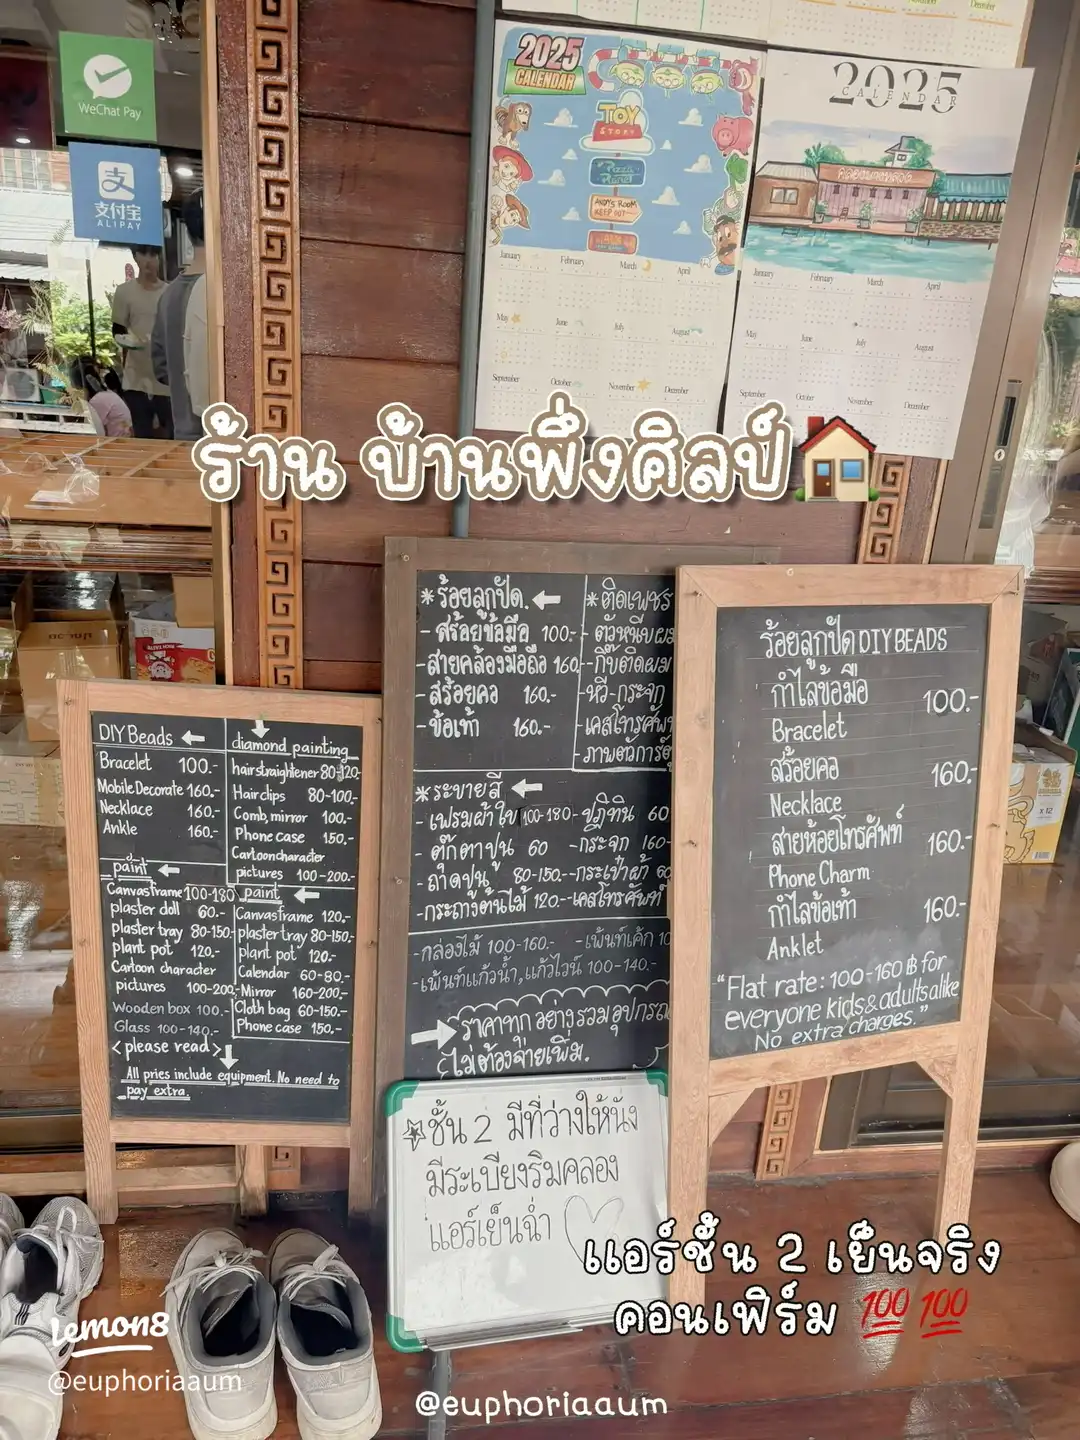 WeChat Pay
支付宝
ALIPAY
2025
CALENDAR
TOY
STORY
Pizza
Planet
ANDY'S ROOM
KEEP OUT
January February March April
May June July August
September October November December
2025
CALENDAR
January February March April
May June July August
September October November December
ร้าน บ้านพึ่งศิลป์
DIY Beads
Bracelet 100.-
Mobile Decorate 160.-
Necklace 160.-
Ankle 160.-
paint
Canvas frame 100-180
plaster doll 60.-
plaster tray 80-150.-
plant pot 120.-
Cartoon character
pictures 100-200.-
Wooden box 100.-
Glass 100-140.-
<please read>
All pries include equipment. No need to
pay extra.
diamond painting
hair straightener 80-120-
Hair clips 80-100.-
Comb, mirror 100.-
Phone case 150.-
Cartoon character
pictures 100-200.-
paint
Canvas frame 120.-
plaster tray 80-150.-
plant pot 120.-
Calendar 60-80.-
Mirror 160-200.-
Cloth bag 60-150.-
Phone case 150.-
*ร้อยลูกปัด.
- สร้อยข้อมือ 100.-
-สายคล้องมือถือ 160.-
-สร้อยคอ 160.-
-ข้อเท้า 160.-
*ติดเพชร
- ตัวหนีบผม
-กิ๊บติดผม
-หวี-กระจก
-เคสโทรศัพท์
-ภาพตัวการ์ตูน
*ระบายสี
- เฟรมผ้าใบ 100-180 -ปฏิทิน 60
- ตุ๊กตาปูน 60 -กระจก 160-
- ถาดปูน 80-150.- -กระเป๋าผ้า 60
-กระถางต้นไม้ 120.- -เคสโทรศัพท์
-กล่องไม้ 100-160.- -เพ้นท์เค้ก 10
-เพ้นท์แก้วน้ำ,แก้วไวน์ 100-140.-
ราคาทุกอย่างรวมอุปกรณ์
ไม่ต้องจ่ายเพิ่ม.
ร้อยลูกปัด DIY BEADS
กำไลข้อมือ 100.-
Bracelet
สร้อยคอ 160.-
Necklace
สายห้อยโทรศัพท์ 160.-
Phone Charm
กำไลข้อเท้า 160.-
Anklet
"Flat rate: 100-160 ฿ for
everyone kids & adults alike
No extra charges."
ชั้น 2 มีที่ว่างให้นั่ง
มีระเบียงริมคลอง
แอร์เย็นฉ่ำ
แอร์ชั้น 2 เย็นจริง
คอนเฟิร์ม 💯💯
Lemon8
@euphoriaaum
@euphoriaaum